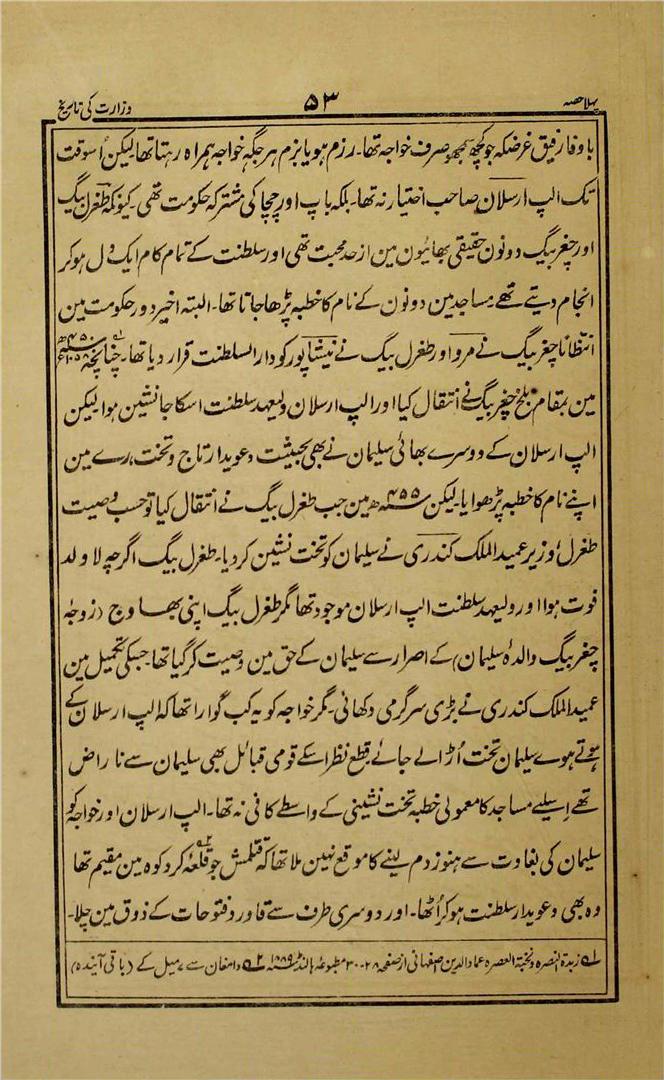 پہلا حصہ ۵۳ وزارت کی تاریخ
باوفا رفیق غرضکہ جو کچھ سمجھو صرف خواجہ تھا۔ رزم ہو یا بزم ہر جگہ خواجہ ہمراہ رہتا تھا۔ لیکن اُسوقت
تک الپ ارسلان صاحب اختیار نہ تھا۔ بلکہ باپ اور چچا کی مشترکہ حکومت تھی۔ کیونکہ طغرل بیگ
اور چغر بیگ دونون حقیقی بھائیون مین از حد محبت تھی اور سلطنت کے تمام کام ایک دل ہو کر
انجام دیتے تھے مساجد مین دونون کے نام کا خطبہ پڑھا جاتا تھا۔ البتہ اخیر دور حکومت مین
انتظاماً چغر بیگ نے مرو اور طغرل بیگ نے نیشاپور کو دارالسلطنت قرار دیا تھا۔ چنانچہ ۴۵۰ھ ۱۰۵۸ع
مین بمقام بلخ چغر بیگ نے انتقال کیا اور الپ ارسلان ولیعہد سلطنت اسکا جانشین ہوا لیکن
الپ ارسلان کے دوسرے بھائی سلیمان نے بھی بحیثیت دعویدار تاج و تخت، رے مین
اپنے نام کا خطبہ پڑھوایا۔ لیکن ۴۵۵ھ مین جب طغرل بیگ نے انتقال کیا تو حسب وصیت
طغرل، وزیر عمید الملک کندری نے سلیمان کو تخت نشین کر دیا۔ طغرل بیگ اگرچہ لا ولد
فوت ہوا اور ولیعہد سلطنت الپ ارسلان موجود تھا مگر طغرل بیگ اپنی بھاوج (زوجۂ
چغر بیگ والدۂ سلیمان) کے اصرار سے سلیمان کے حق مین وصیت کر گیا تھا۔ جسکی تکمیل مین
عمید الملک کندری نے بڑی سرگرمی دکھائی۔ مگر خواجہ کو یہ کب گوارا تھا کہ الپ ارسلان کے
ہوتے ہوے سلیمان تخت اُڑا لے جائے قطع نظر اسکے قومی قبائل بھی سلیمان سے ناراض
تھے اِسلیے مساجد کا معمولی خطبہ تخت نشینی کے واسطے کافی نہ تھا۔ الپ ارسلان اور خواجہ کو
سلیمان کی بغاوت سے ہنوز دم لینے کا موقع نہین ملا تھا کہ قتلمش جو قلعۂ گرد کوہ۲ مین مقیم تھا
وہ بھی دعویدار سلطنت ہو کر اُٹھا۔ اور دوسری طرف سے قاورد فتوحات کے ذوق مین چلا۔
۱ زبدۃ النصرہ و نخبۃ العصرہ عماد الدین اصفہانی از صفحہ ۲۸-۳۰ مطبوعہ ہالنڈ ۱۸۸۹ع ۲ دامغان سے ۷ میل کے (باقی آیندہ)